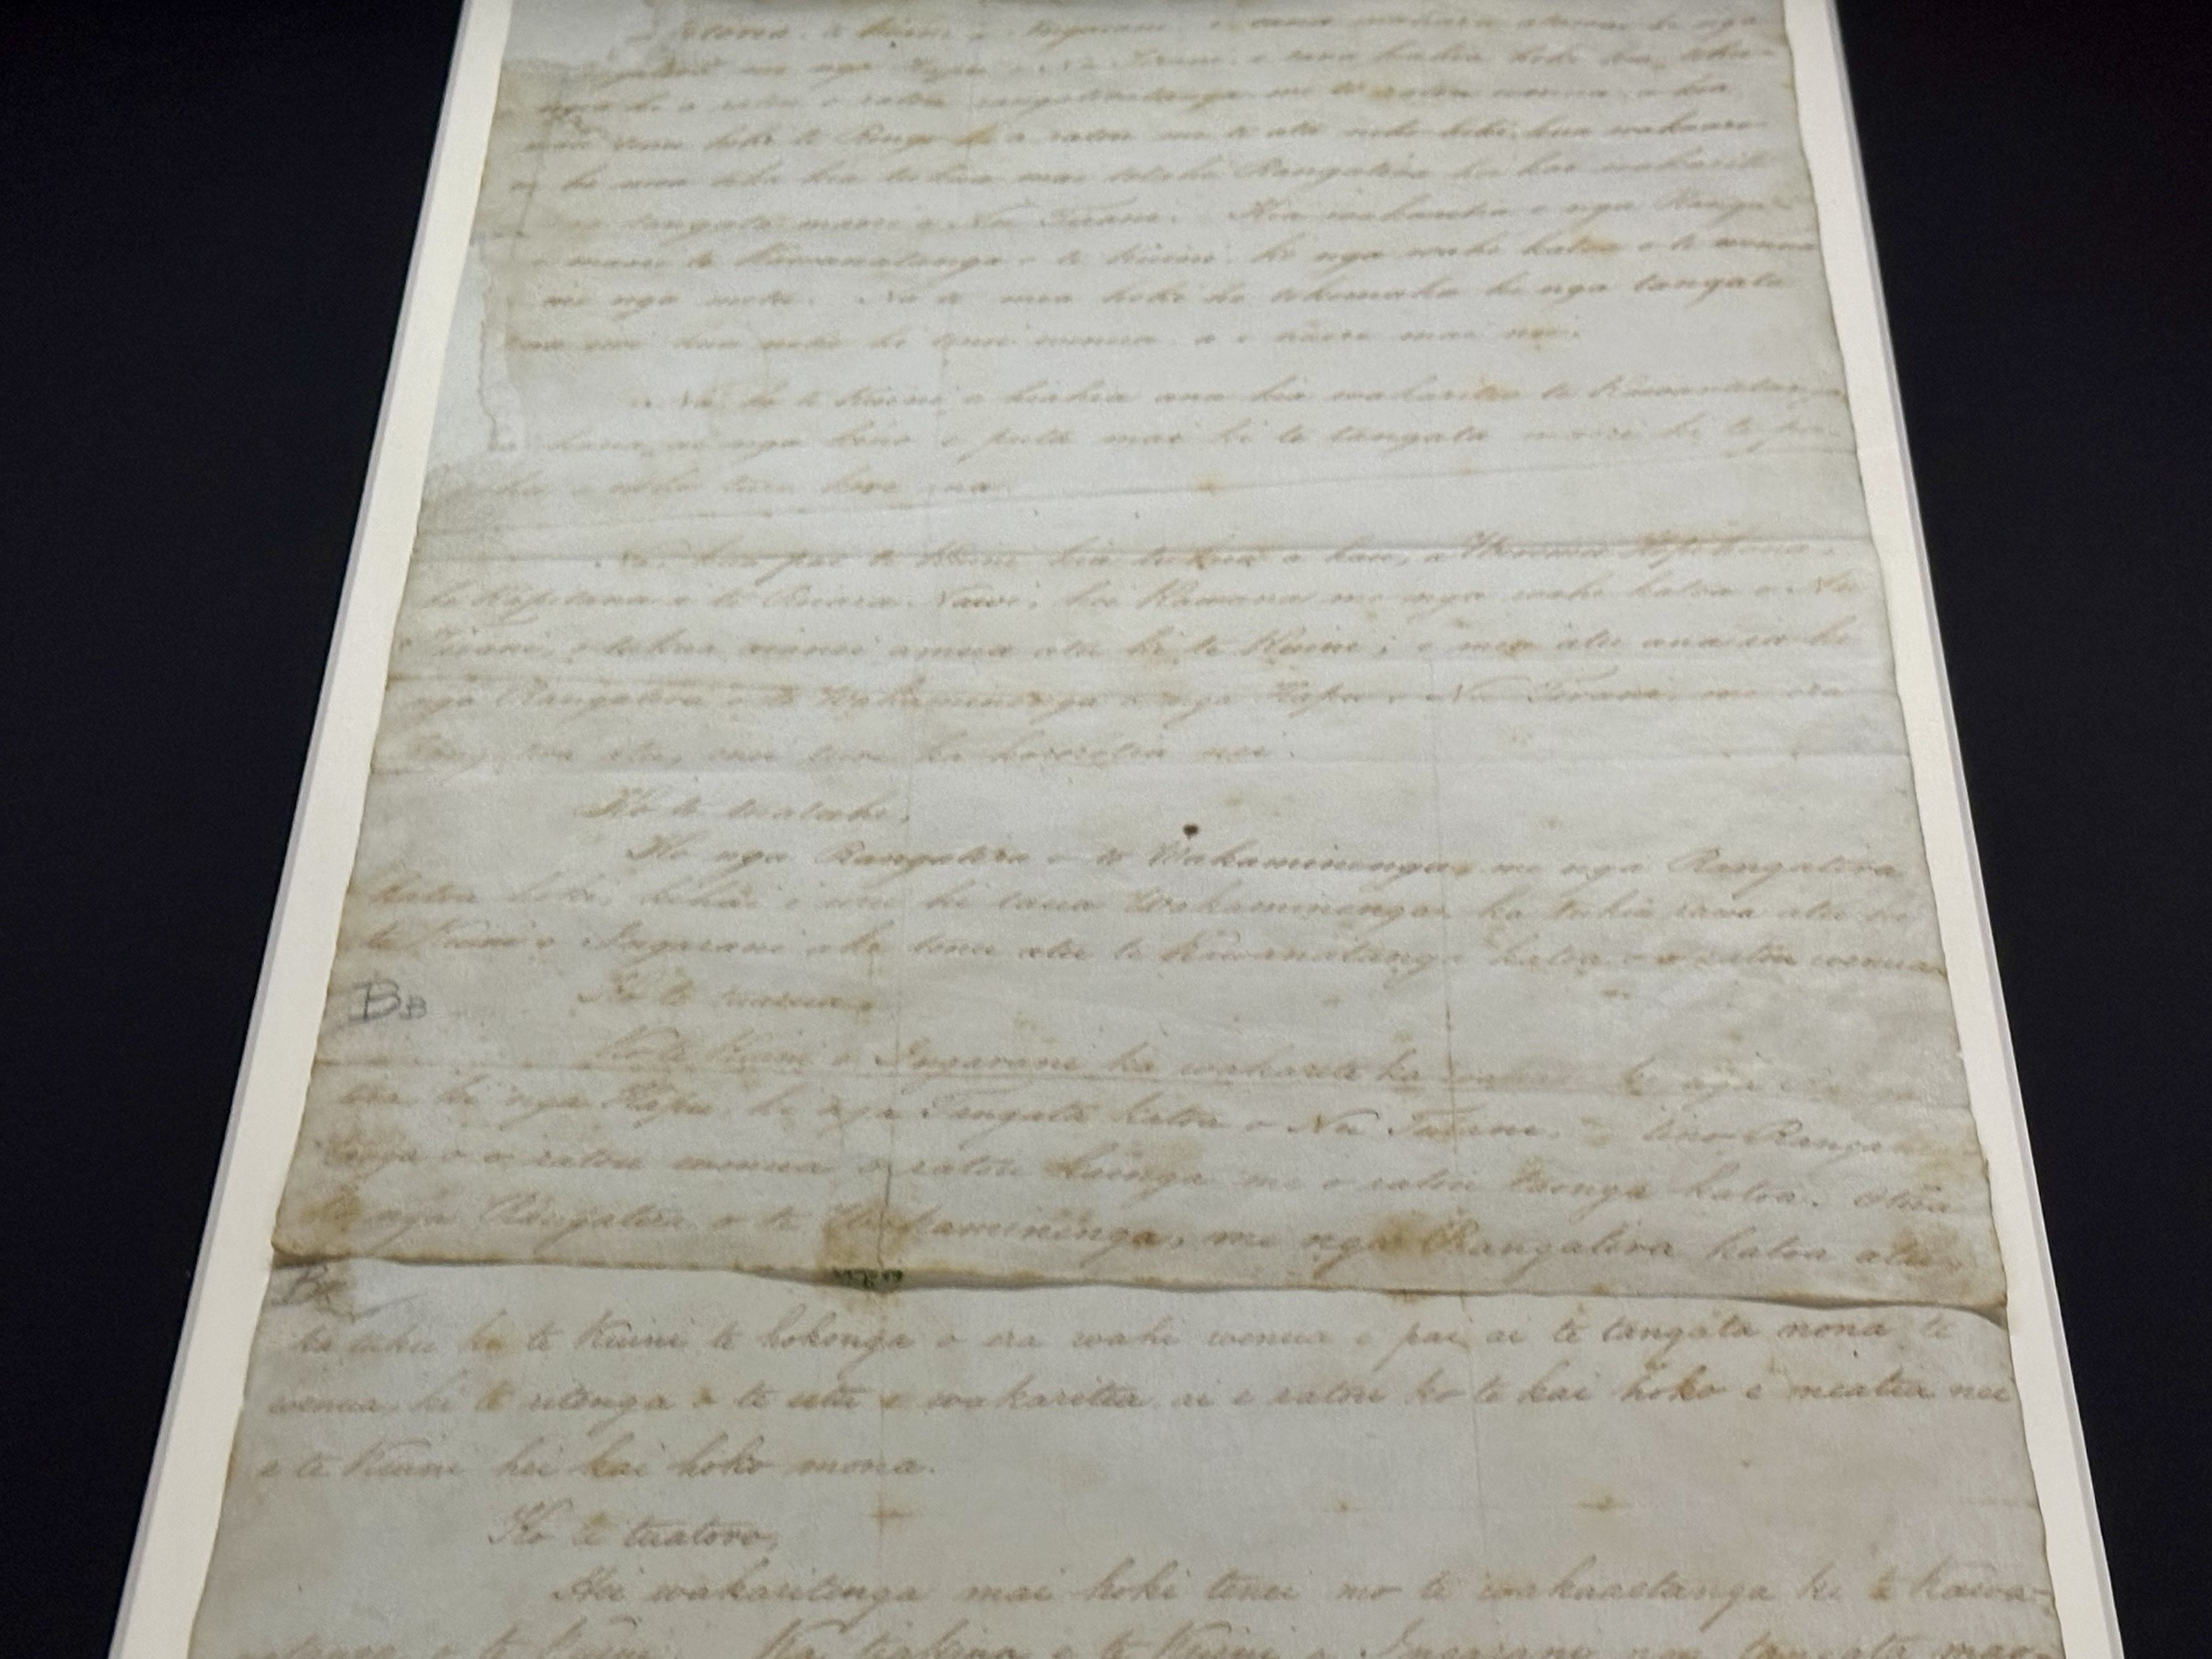 te Kuini o Ingarani i tana mahara atawai ki nga
me nga Hapu o Nu Tirani i tana hiahia hoki kia tohu-
ngia ki a ratou o ratou rangatiratanga me to ratou wenua, a kia
mau tonu hoki te Rongo ki a ratou me te ata noho hoki kua wakaaro
ia he mea tika kia tukua mai tetahi Rangatira hei kai wakarite
nga tangata maori o Nu Tirani. Kia wakaaetia e nga Ranga-
maori te Kawanatanga o te Kuini ki nga wahi katoa o te wenua
me nga motu. Na te mea hoki he tokomaha ke nga tangata
tona iwi kua noho ki tenei wenua, a e haere mai nei.
Na ko te Kuini e hiahia ana kia wakaritea te Kawanatanga
kaua ai nga kino e puta mai ki te tangata maori ki te pa-
keha e noho ture kore ana.
Na, kua pai te Kuini kia tukua a hau, a Wiremu Hopihona,
he Kapitana i te Roiara Nawi, hei Kawana mo nga wahi katoa o Nu
Tirani, e tukua aianei amua atu ki te Kuini; e mea atu ana ia ki
nga Rangatira o te Wakaminenga o nga Hapu o Nu Tirani me era
Rangatira atu, enei ture ka korerotia nei.
Ko te tuatahi,
Ko nga Rangatira o te Wakaminenga, me nga Rangatira
katoa hoki, kihai i uru ki taua Wakaminenga, ka tuku rawa atu ki
te Kuini o Ingarani ake tonu atu te Kawanatanga katoa o o ratou wenua
BB
Ko te tuarua,
Ko te Kuini o Ingarani ka wakarite ka wakaae ki nga
tira ki nga Hapu, ki nga Tangata katoa o Nu Tirani, tino Rangati
tanga o o ratou wenua o ratou kainga me o ratou taonga katoa. Otiia
ko nga Rangatira o te Wakaminenga, me nga Rangatira katoa atu,
ka tuku ki te Kuini te hokonga o era wahi wenua e pai ai te tangata nona te
wenua, ki te ritenga o te utu e wakaritea ai e ratou ko te kai hoko e meatia nei
e te Kuini hei kai hoko mona.
Ko te tuatoru,
Hei wakaritenga mai hoki tenei mo te wakaaetanga ki te Kawa-
natanga o te Kuini. Ka tiakina e te Kuini o Ingarani nga tangata mao-